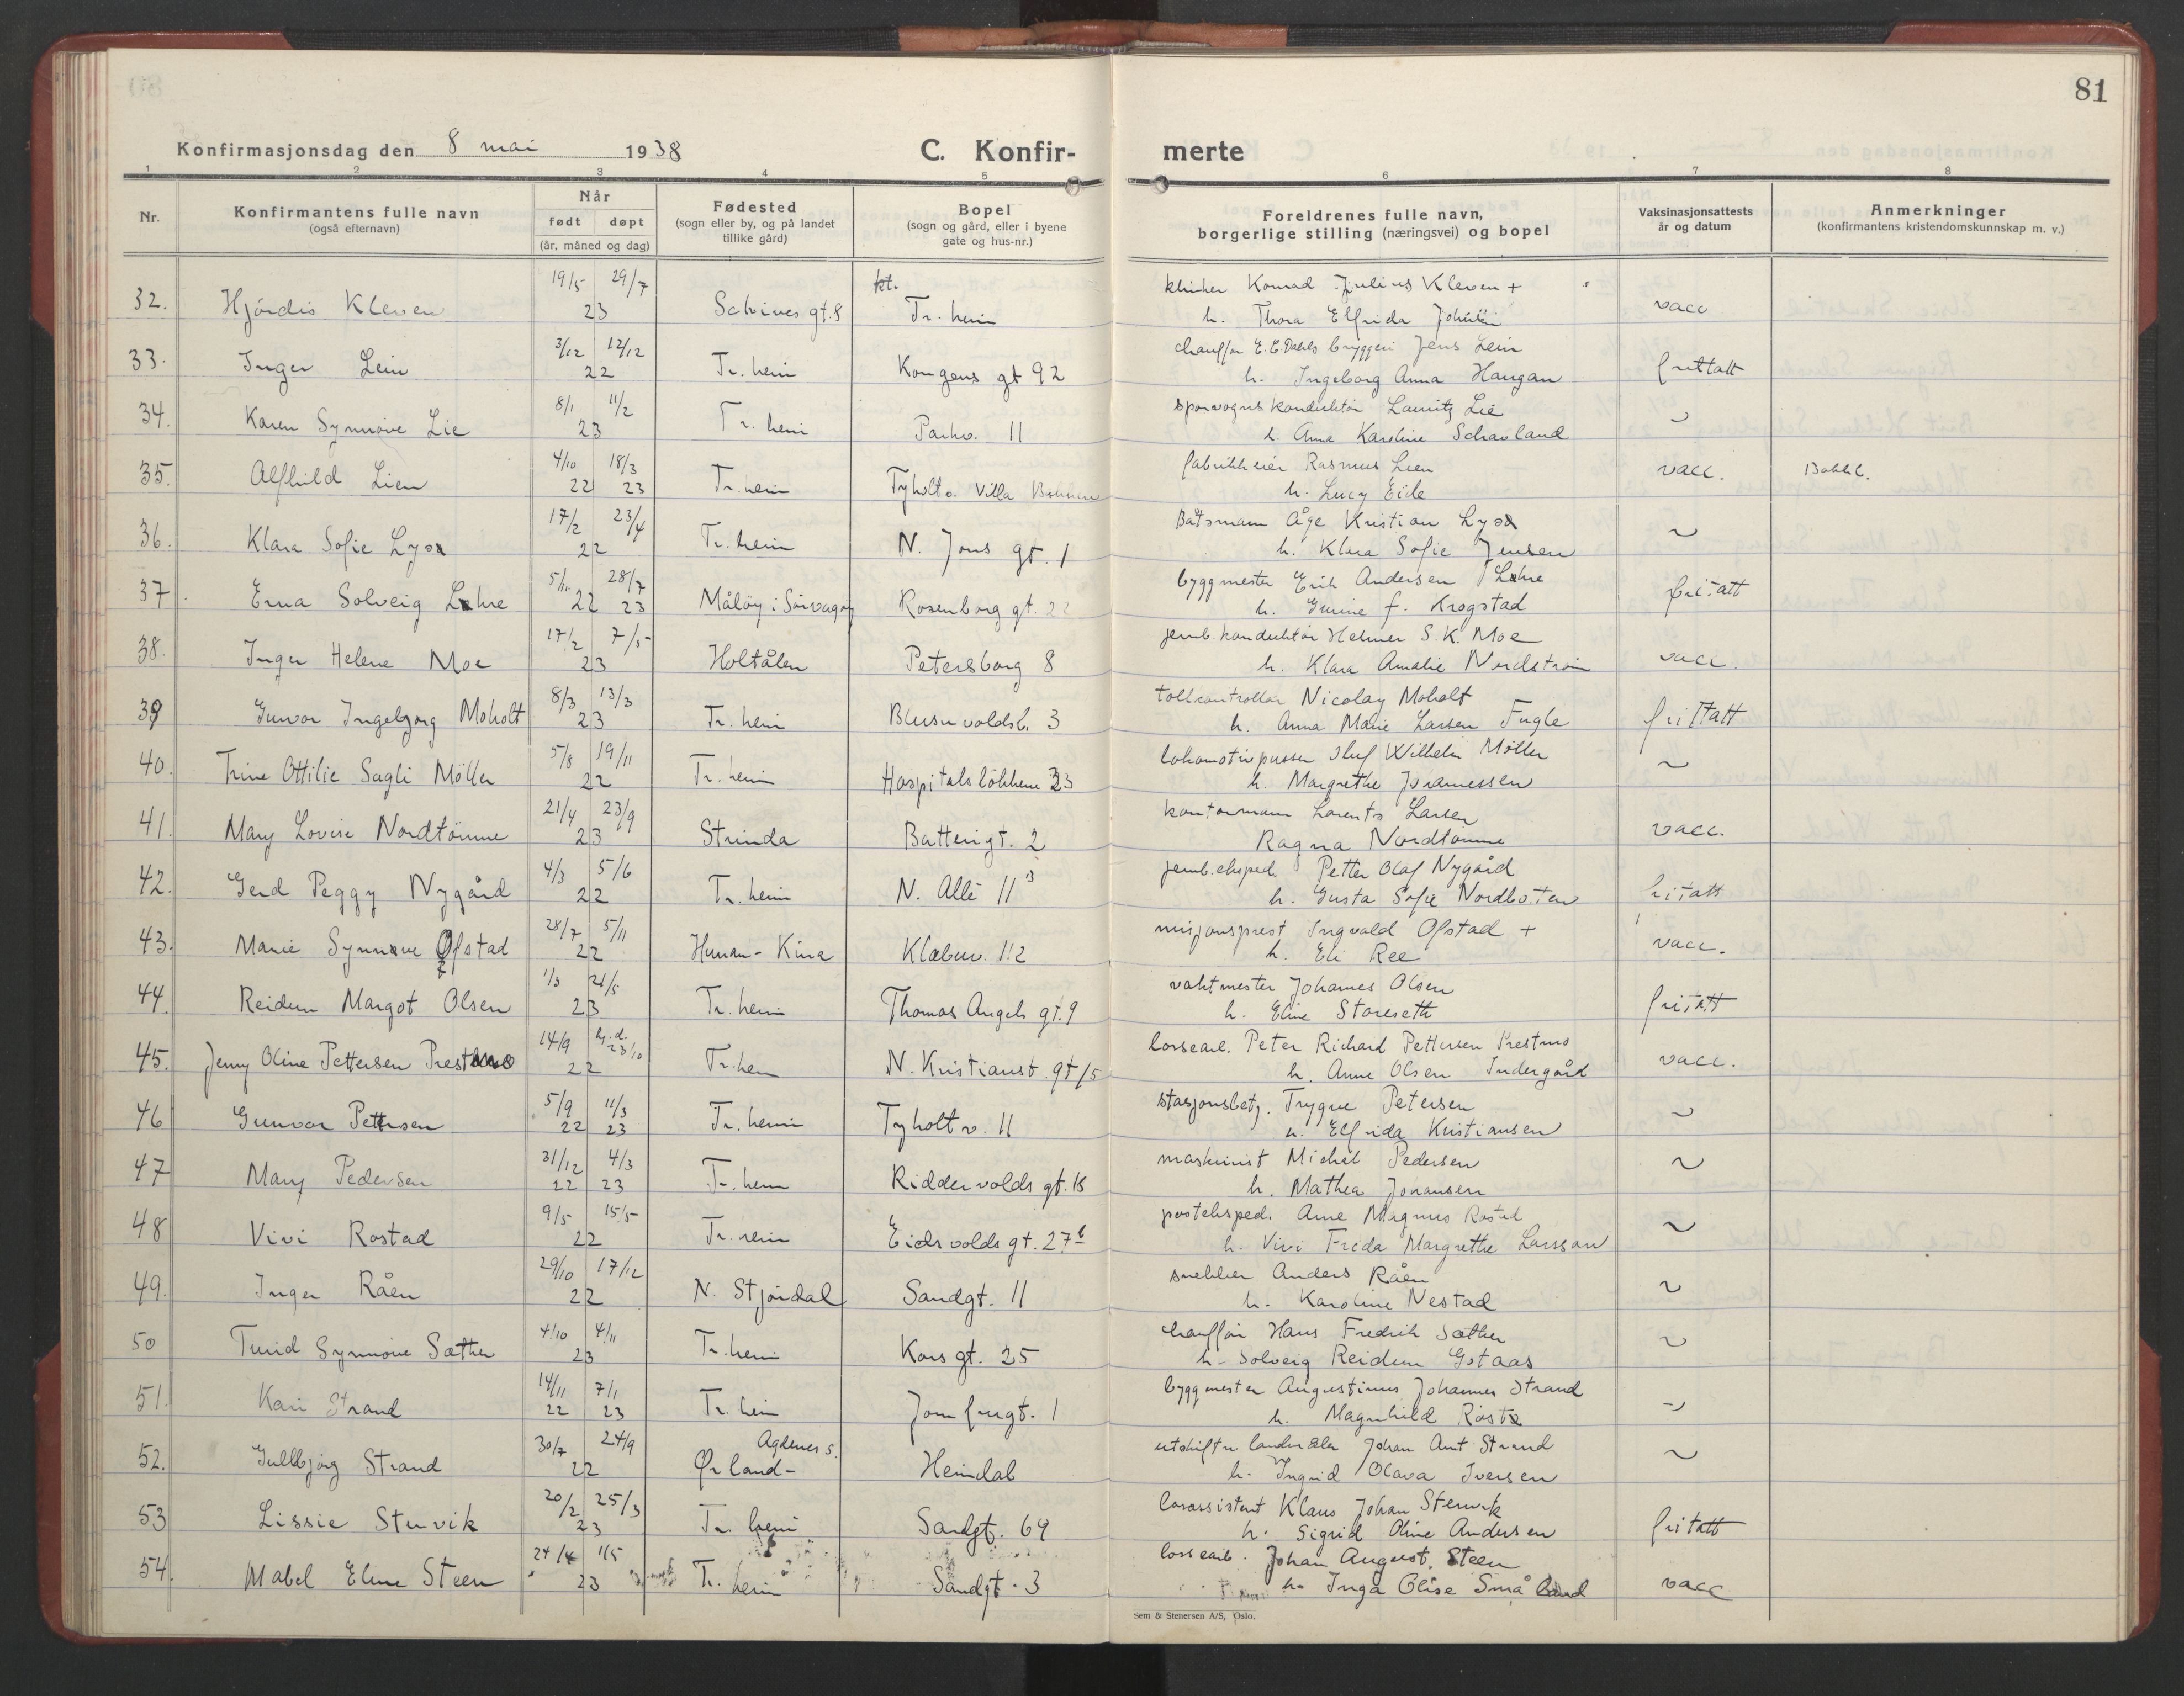 81
Konfirmasjonsdag den 8 mai 1938
C. Konfir- merte
1 2 3 4 5 6 7 8
Nr.
Konfirmantens fulle navn
(også efternavn)
Når
født døpt
(år, måned og dag)
Fødested
(sogn eller by, og på landet
tillike gård)
Bopel
(sogn og gård, eller i byene
gate og hus-nr.)
Foreldrenes fulle navn,
borgerlige stilling (næringsvei) og bopel
Vaksinasjonsattests
år og datum
Anmerkninger
(konfirmantens kristendomskunnskap m. v.)
19/5 29/7 Konrad Julius Kleven +
32. Hjördis Kleven 23 Schives gt. 8 Tr. heim h. Thora Elfrida vacc
3/12 12/12 chauffør E.C. Dahls bryggeri Jens Lein
33. Inger Lein 22 Tr. heim Kongens gt 92 h. Ingeborg Anna Haugan frittatt
8/1 11/2 sporvognskonduktör Lauritz Lie
34. Karen Synnöve Lie 23 Tr. heim Parkv. 11 h. Anna Karoline Schavland ~
4/10 18/3 fabrikkeier Rasmus Lien
35. Alfhild Lien 22 23 Tr. heim Tyholtv. Villa h. Lucy Eide vacc.
17/2 23/4 Båtsmann Åge Kristian
36. Klara Sofie 22 Tr. heim N. Jons gt. 1 h. Klara Sofie Jensen ~
5/11 28/7 byggmester Erik Andersen
37. Erna Solveig 22 23 Måløy i Rosenborg gt. 22 h. Gunine f. Krogstad fritatt
17/2 7/5 jernb. konduktör Helmer S. K. Moe
38. Inger Helene Moe 23 Holtålen Petersborg 8 h. Klara Amalie Nordström vacc.
8/3 13/3 tollkontrollör Nicolay Moholt
39 Gunvor Ingebjørg Moholt 23 Tr. heim Blusuvoldsb. 3 h. Anna Marie Larsen Fugle frittatt
5/8 19/11 lokomotivpusser Oluf Wilhelm Möller
40. Trine Ottilie Sagli Möller 22 Tr. heim Hospitalslökkene 33 h. Margrethe Johannessen ~
21/4 23/9 kontormann Lorents Larsen
41. Mary Lovise Nordtömme 23 Strinda Batterigt. 2 Ragna Nordtömme vacc.
4/3 5/6 jernb.eksped. Petter Olaf Nygård
42. Gerd Peggy Nygård 22 Tr. heim N. Allé 11 h. Gusta Sofie Nordbotten fritatt
28/7 5/11 misjonsprest Ingvald Ofstad +
43. Marie Synnøve Ofstad 22 Hunan - Kina Klæbuv. 112 h. Eli Ree vacc.
1/3 21/5 vaktmester Johannes Olsen
44. Reidun Margot Olsen 23 Tr. heim Thomas Angels gt. 9 h. Eline Storeseth fritatt
14/9 hj.d. 23/10 lossearb. Peter Richard Pettersen Prestmo
45. Jenny Oline Pettersen Prestmo 22 Tr. heim N. Kristianst. gt 15 h. Anne Olsen Indergård vacc.
5/9 11/3 stasjonsbetj. Trygve Petersen
46 Gunvor Petersen 22 23 Tr. heim Tyholtv. 11 h. Elfrida Kristiansen ~
31/12 4/3 maskinist Michal Pedersen
47 Mary Pedersen 22 23 Tr. heim Riddervolds gt. 18 h. Mathea Johansen ~
9/5 15/5 posteksped. Arne Magnus Rostad
48 Vivi Rostad 22 Tr. heim Eidsvolds gt. 27b h. Vivi Frida Margrethe Larsson ~
29/10 17/12 snekker Anders Råen
49. Inger Råen 22 N. Stjördal Sandgt. 11 h. Karoline Nestad ~
4/10 4/11 chauffør Hans Fredrik Sæther
50 Turid Synnöve Sæther 23 Tr. heim Kors gt. 25 h. Solveig Reidun Gotaas ~
14/11 7/1 byggmester Augustinus Johannes Strand
51. Kari Strand 22 23 Tr. heim Jomfrugt. 1 h. Magnhild ~
30/7 24/9 Agdenes s. Johan Arnt Strand
52. Gullbjörg Strand 22 Ørland - Heimdal h. Ingrid Olava Iversen ~
20/2 25/3 losassistent Klaus Johan Stenvik
53 Lissie Stenvik 23 Tr. heim Sandgt. 69 h. Sigrid Oline Andersen fritatt
24/4 11/5 lossearb. Johan August Steen
54. Mabel Eline Steen 23 Tr. heim Sandgt. 3 h. Inga Olise Småland vacc
Sem & Stenersen A/S, Oslo.